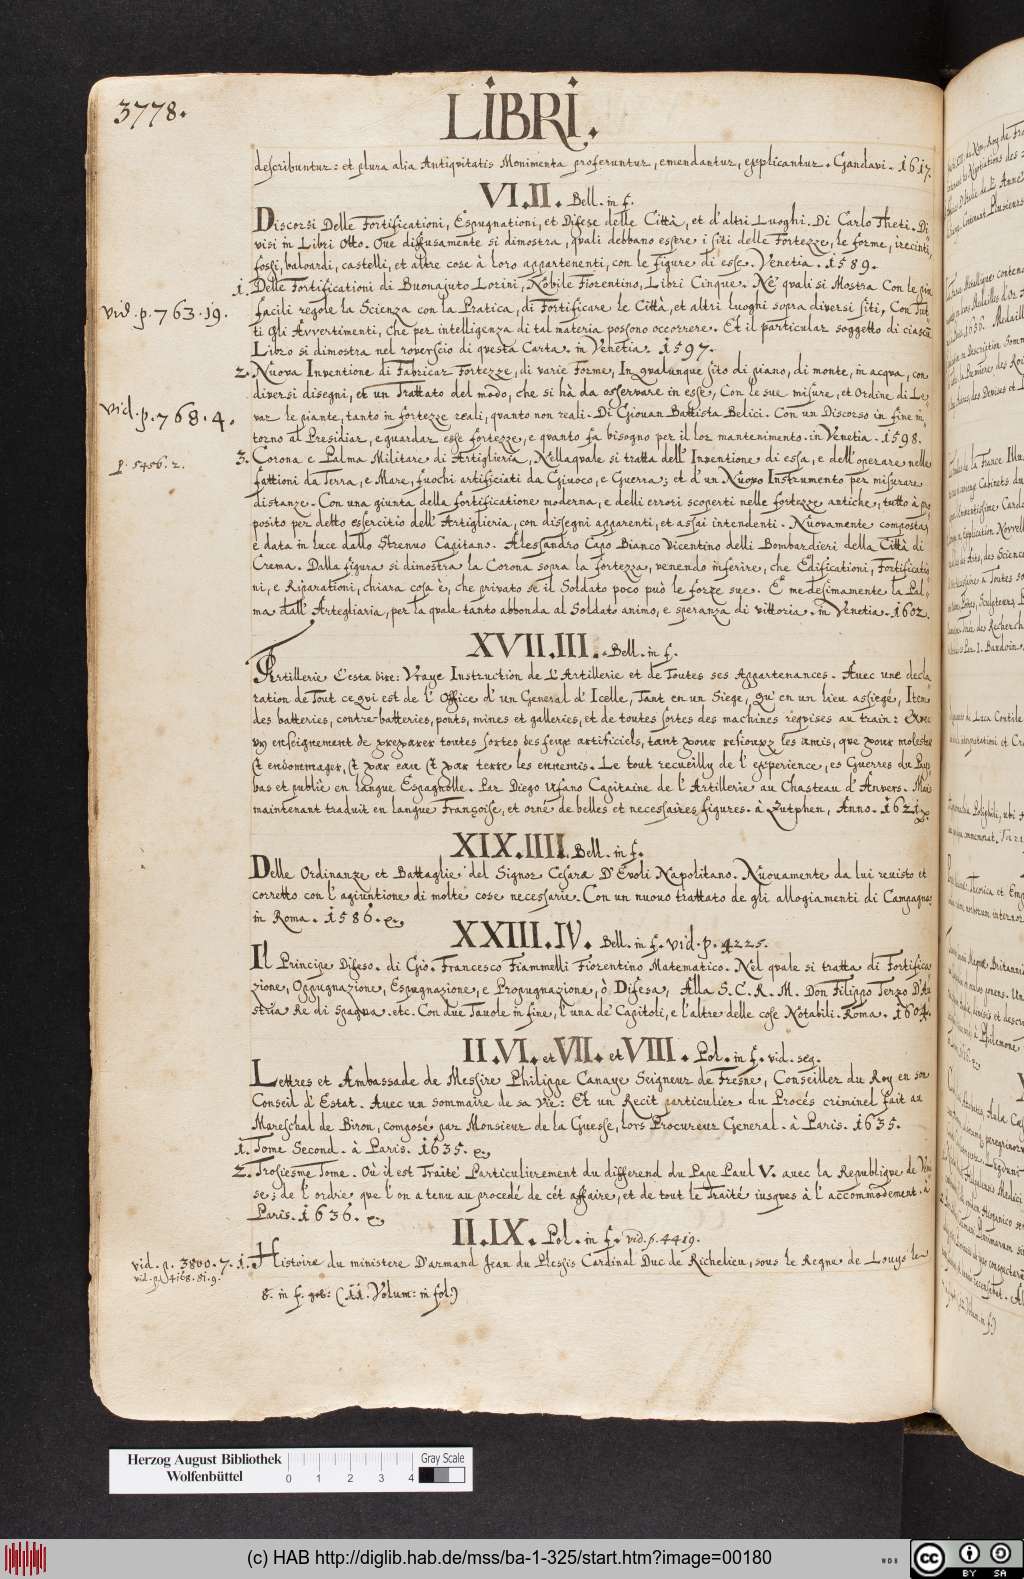 3778.
LIBRI.
describuntur: et plura alia Antiqvitatis Monimenta proferuntur, emendantur, explicantur. Gandavi. 1617.
VI.II. Bell. in f.
Discorsi Delle Fortificationi, Espugnationi, et Difese delle Città, et d'altri Luoghi. Di Carlo Theti. Di-
visi in Libri Otto. Oue diffusamente si dimostra, quali debbano essere i siti delle Fortezze, le forme, i recinti,
fossi, baloardi, castelli, et altre cose à loro appartenenti, con le figure di esse. Venetia. 1589.
1. Delle Fortificationi di Buonajuto Lorini, Nobile Fiorentino, Libri Cinque. Ne' quali si Mostra Con le piu
vid. p. 763.19.
facili regole la Scienza con la Pratica, di Fortificare le Città, et altri luoghi sopra diversi siti, Con Tut-
ti gli Avvertimenti, che per intelligenza di tal materia possono occorrere. Et il particular soggetto di ciascũ
Libro si dimostra nel roverscio di questa Carta. in Venetia. 1597.
2. Nuova Inventione di Fabricar Fortezze, di varie Forme, In qualunque sito di piano, di monte, in acqua, con
diversi disegni, et un Trattato del modo, che si hà da osservare in esse, Con le sue misure, et Ordine di Le-
vid. p. 768.4.
var le piante, tanto in fortezze reali, quanto non reali. Di Giouan Battista Belici. Con un Discorso in fine in-
torno al Presidiar, e guardar esse fortezze, e quanto fa bisogno per il lor mantenimento. in Venetia. 1598.
p. 5456.2.
3. Corona e Palma Militare di Artiglieria, Nella quale si tratta dell' Inventione di essa, e dell' operare nelle
fattioni da Terra, e Mare, fuochi artificiati da Giuoco, e Guerra; et d'un Nuovo Instrumento per misurare
distanze. Con una giunta della fortificatione moderna, e delli errori scoperti nelle fortezze antiche, tutto à pro-
posito per detto essercitio dell' Artiglieria, con dissegni apparenti, et assai intendenti. Nuovamente composta,
e data in luce dallo Strenuo Capitano. Alessandro Capo Bianco Vicentino delli Bombardieri della Città di
Crema. Dalla figura si dimostra la Corona sopra la fortezza, venendo inferire, che Edificationi, Fortificatio-
ni, e Riparationi, chiara cosa è, che privato se il Soldato poco può le forze sue. E' medesimamente la Pal-
ma dall' Artegliaria, per la quale tanto abbonda al Soldato animo, e speranza di vittoria. in Venetia. 1602.
XVII.III. Bell. in f.
Artillerie C'esta dire: Vraye Instruction de L'Artillerie et de Toutes ses Appartenances. Auec une decla-
ration de Tout ce qvi est de l' Office d'un General d' Icelle, Tant en un Siege, Qu' en un lieu assiegé, Item
des batteries, contre-batteries, ponts, mines et galleries, et de toutes sortes des machines reqvises au train: Avec
un enseignement de preparer toutes sortes des feux artificiels, tant pour resiouyr les amis, que pour molester
et endommager, et par eau et par terre les ennemis. Le tout recueilly de l' experience, es Guerres du Pays-
bas et publié en langue Espagnolle. Par Diego Ufano Capitaine de l' Artillerie au Chasteau d' Anvers. Mais
maintenant traduit en langue Françoise, et orné de belles et necessaires figures. à Zutphen, Anno. 1621.
XIX.IIII. Bell. in f.
Delle Ordinanze et Battaglie del Signor Cesare D' Evoli Napolitano. Nuouamente da lui reuisto et
corretto con l' agiuntione di molte cose necessarie. Con un nuouo trattato de gli allogiamenti di Campagna.
in Roma. 1586.
XXIII.IV. Bell. in f. vid. p. 4225.
Il Principe Difeso. di Gio. Francesco Fiammelli Fiorentino Matematico. Nel quale si tratta di Fortifica-
zione, Oppugnazione, Espugnazione, e Propugnazione, ò Difesa, Alla S. C. R. M. Don Filippo Terzo D'Au-
stria Re di Spagna. etc. Con due Tauole in fine, l' una de' Capitoli, e l' altre delle cose Notabili. Roma. 1604.
II.VI. et VII. et VIII. Pol. in f. vid. seq.
Lettres et Ambassade de Messire Philippe Canaye Seigneur de Fresne, Conseiller du Roy en son
Conseil d' Estat. Auec un sommaire de sa Vie: Et un Recit particulier du Procés criminel fait au
Mareschal de Biron, composé par Monsieur de la Guesle, lors Procureur General. à Paris. 1635.
1. Tome Second. à Paris. 1635.
2. Troisiesme Tome. Où il est Traité Particulierement du differend du Pape Paul V. avec la Republique de Veni-
se; de l' ordre que l' on a tenu au procedé de cét affaire, et de tout le Traité iusques à l' accommodement. à
Paris. 1636.
II.IX. Pol. in f. vid. p. 4419.
vid. p. 3800.7. 1. Histoire du ministere D'armand Jean du Plessis Cardinal Duc de Richelieu, sous le Regne de Louys le
vid. p. 4168.81.9.
8. in f. geb: (11. Volum: in fol.)
Herzog August Bibliothek
Wolfenbüttel
0 1 2 3 4
Gray Scale
(c) HAB http://diglib.hab.de/mss/ba-1-325/start.htm?image=00180
WDB
cc BY SA